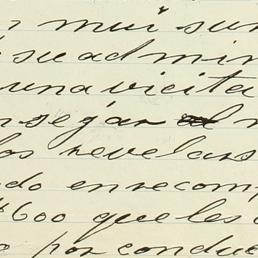 mui sun
su admin
una vicita
segár al
los revelars
do enrecomp
$600 que les
por conduc